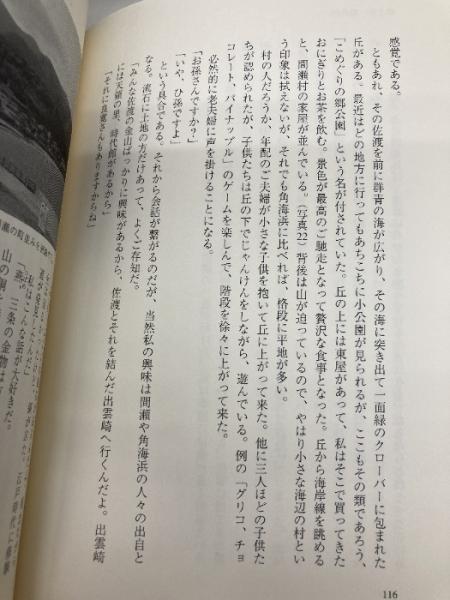 感覚である。
ともあれ、その佐渡を前に群青の海が広がり、その海に突き出て一面緑のクローバーに包まれた
丘がある。最近はどの地方に行ってもあちこちに小公園が見られるが、ここもその類であろう、
「こめぐりの郷公園」という名が付されていた。丘の上には東屋があって、私はそこで買ってきた
おにぎりとお茶を飲む。景色が最高のご馳走となって贅沢な食事となった。丘から海岸線を眺める
と、間瀬村の家屋が並んでいる。(写真22)背後は山が迫っているので、やはり小さな海辺の村とい
う印象は拭えないが、それでも角海浜に比べれば、格段に平地が多い。
村の人だろうか、年配のご夫婦が小さな子供を抱いて丘に上がって来た。他に三人ほどの子供た
ちが認められたが、子供たちは丘の下でじゃんけんをしながら、遊んでいる。例の「グリコ、チョ
コレート、パイナップル」のゲームを楽しんで、階段を徐々に上がって来た。
必然的に老夫婦に声を掛けることになる。
「お孫さんですか?」
「いや、ひ孫ですよ」
という具合である。それから会話が繋がるのだが、当然私の興味は間瀬や角海浜の人々の出自と
なる。流石に土地の方だけあって、よくご存知だ。
「みんな佐渡の金山ばっかりに興味があるから、佐渡とそれを結んだ出雲崎へ行くんだよ。出雲崎
には天領の里、時代館があるから」
「それに良寛さんもありますからね」
116
私はこんな話が大好きだ。
「燕、三条の金物は
山の銅